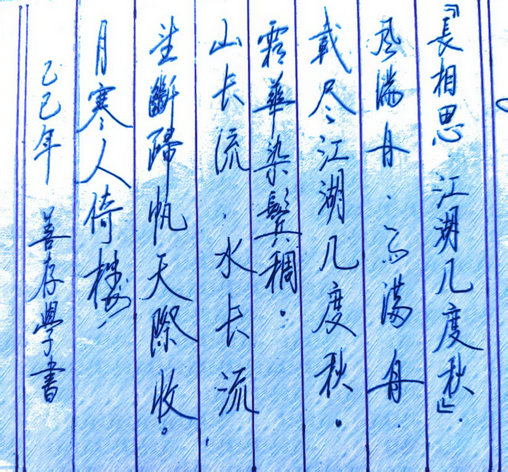 『長相思·江湖几度秋』
风滿舟.雨滿舟.
載尽江湖几度秋.
霜華染鬢稠。
山长流.水长流.
望斷歸帆天際收。
月寒人倚樓
乙巳年 善存學書